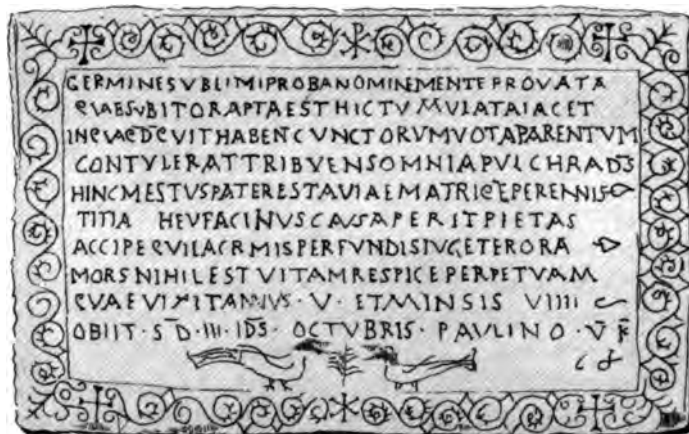 GERMINESVBLIMIPROBANOMINEMENTEPROVATA
QVAESVBITORAPTAESTHICTVMVLATAIACET
INQVAEDQVITHABENCVNCTORVMVOTAPARENTVM
CONTVLERATTRIBVENSOMNIAPVLCHRADS
HINCMESTVSPATERESTAVIAEMATRIQEPERENNIS
TITIA HEVFACINVSCAVSAPERITPIETAS
ACCIPEQVILACRMISPERFVNDISIVGETERORA
MORSNIHILESTVITAMRESPICEPERPETVAM
QVAEVIXITANNVS·V·ETMINSIS VIIII
OBIIT·SD·III·IDS·OCTVBRIS·PAVLINO·V